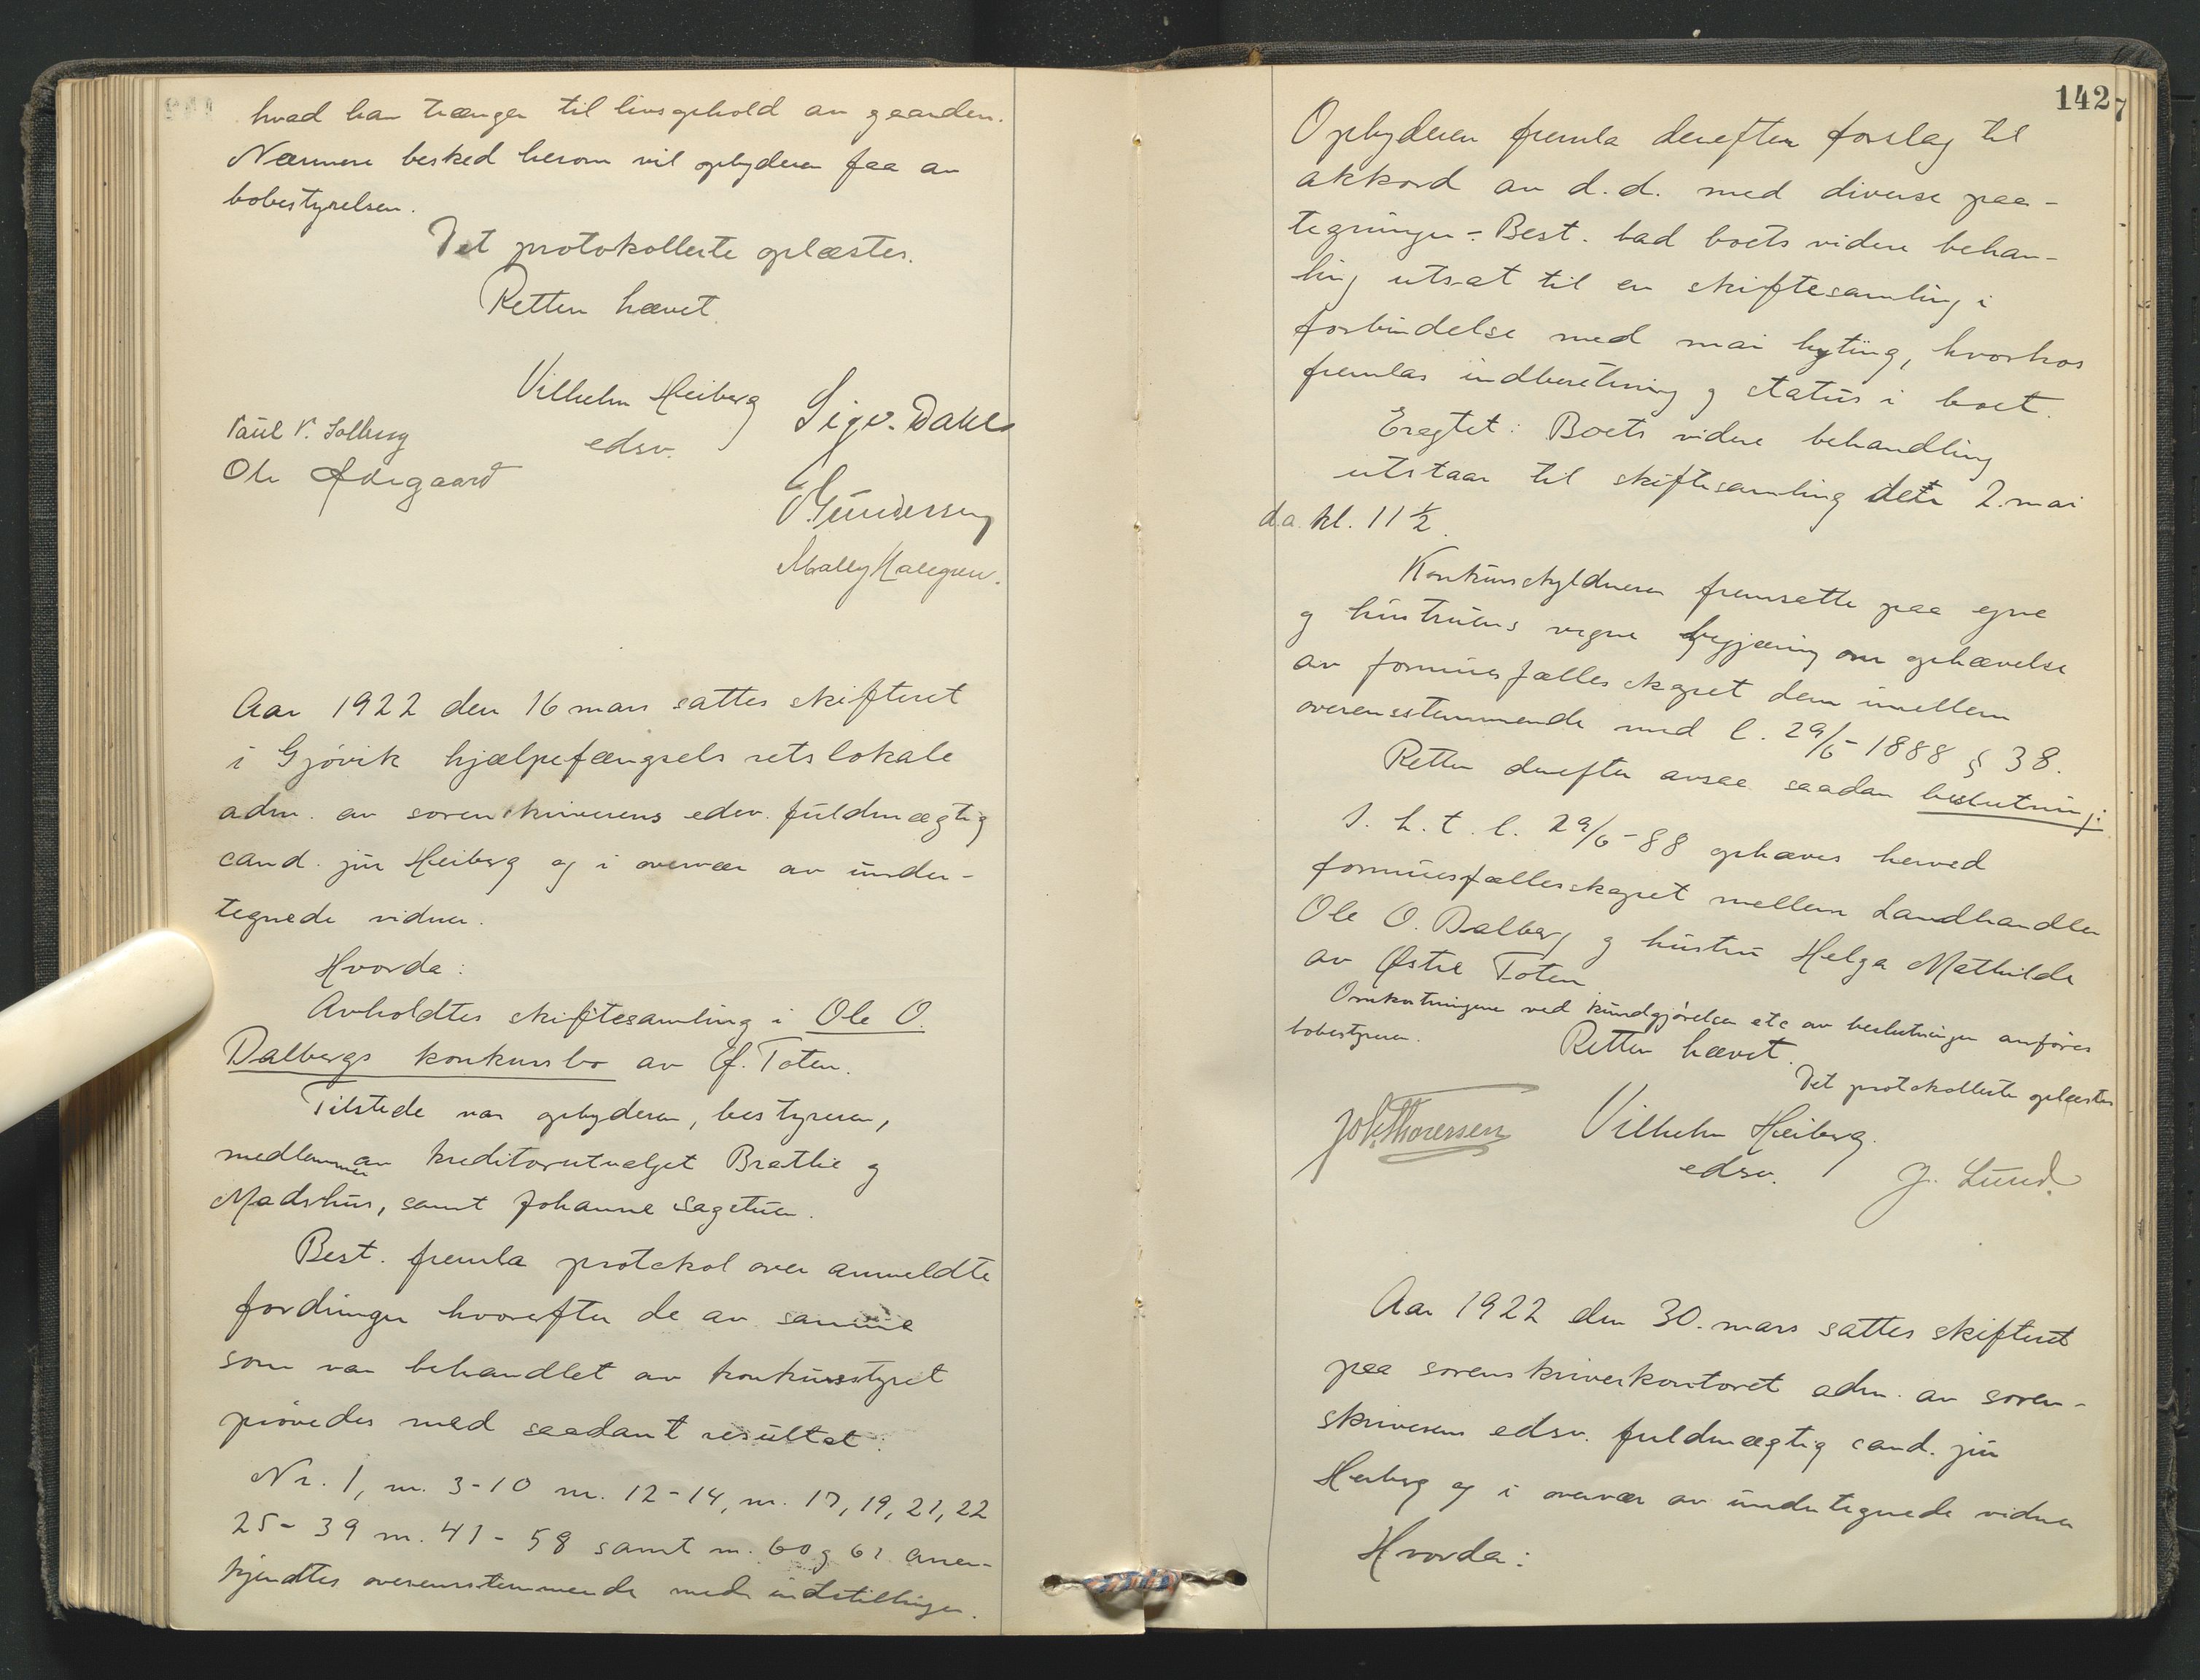 hvad han trænger til livsophold av gaarden.
Nærmere besked herom vil opbyderen faa av
bobestyrelsen.
Det protokollerte oplæstes.
Retten hævet.
Vilhelm Heiberg
edsv.
Sigv. Dahl
Paul V. Solberg
Ole Ødegaard
Gundersen
Mally Hallgren.
Aar 1922 den 16 mars sattes skifteret
i Gjøvik hjælpefængsels retslokale
adm. av sorenskriverens edsv. fuldmægtig
cand. jur Heiberg og i overvær av under-
tegnede vidner.
Hvorda:
Avholdtes skiftesamling i Ole O.
Dalbergs konkursbo av Ø. Toten.
Tilstede var opbyderen, bestyreren,
medlemmer av kreditorutvalget Brattlie og
Madshus, samt Johanne Sagstuen.
Best. fremla protokol over anmeldte
fordringer hvorefter de av samme
som var behandlet av konkursstyret
prøvedes med saadant resultat:
Nr. 1, nr. 3-10 nr. 12-14, nr. 17, 19, 21, 22
25-39 nr. 41-58 samt nr. 60 og 61 aner-
kjendtes overensstemmende med indstillingen.
142
Opbyderen fremla derefter forslag til
akkord av d.d. med diverse paa-
tegninger. - Best. bad boets videre behan-
ling utsat til en skiftesamling i
forbindelse med mai byting, hvorhos
fremlas indberetning og status i boet.
Eragtet: Boets videre behandling
utstaar til skiftesamling den 2. mai
d.a. kl. 11 1/2.
Konkursskyldneren fremsatte paa egne
og hustruens vegne begjæring om ophævelse
av formuesfællesskapet dem imellem
overensstemmende med l. 29/6-1888 § 38.
Retten derefter avsae saadan beslutning:
I. h. t. l. 29/6-88 ophæves herved
formuesfællesskapet mellem Landhandler
Ole O. Dalberg og hustru Helga Mathilde
av Østre Toten
Omkostningene ved kundgjørelsen etc av beslutningen anføres
bobestyreren.
Retten hævet.
Det protokollerte oplæstes
Joh. Thoressen
Vilhelm Heiberg.
edsv.
J. Lund.
Aar 1922 den 30. mars sattes skifteret
paa sorenskriverkontoret adm. av soren-
skriverens edsv. fuldmægtig cand. jur
Heiberg og i overvær av undertegnede vidner
Hvorda: